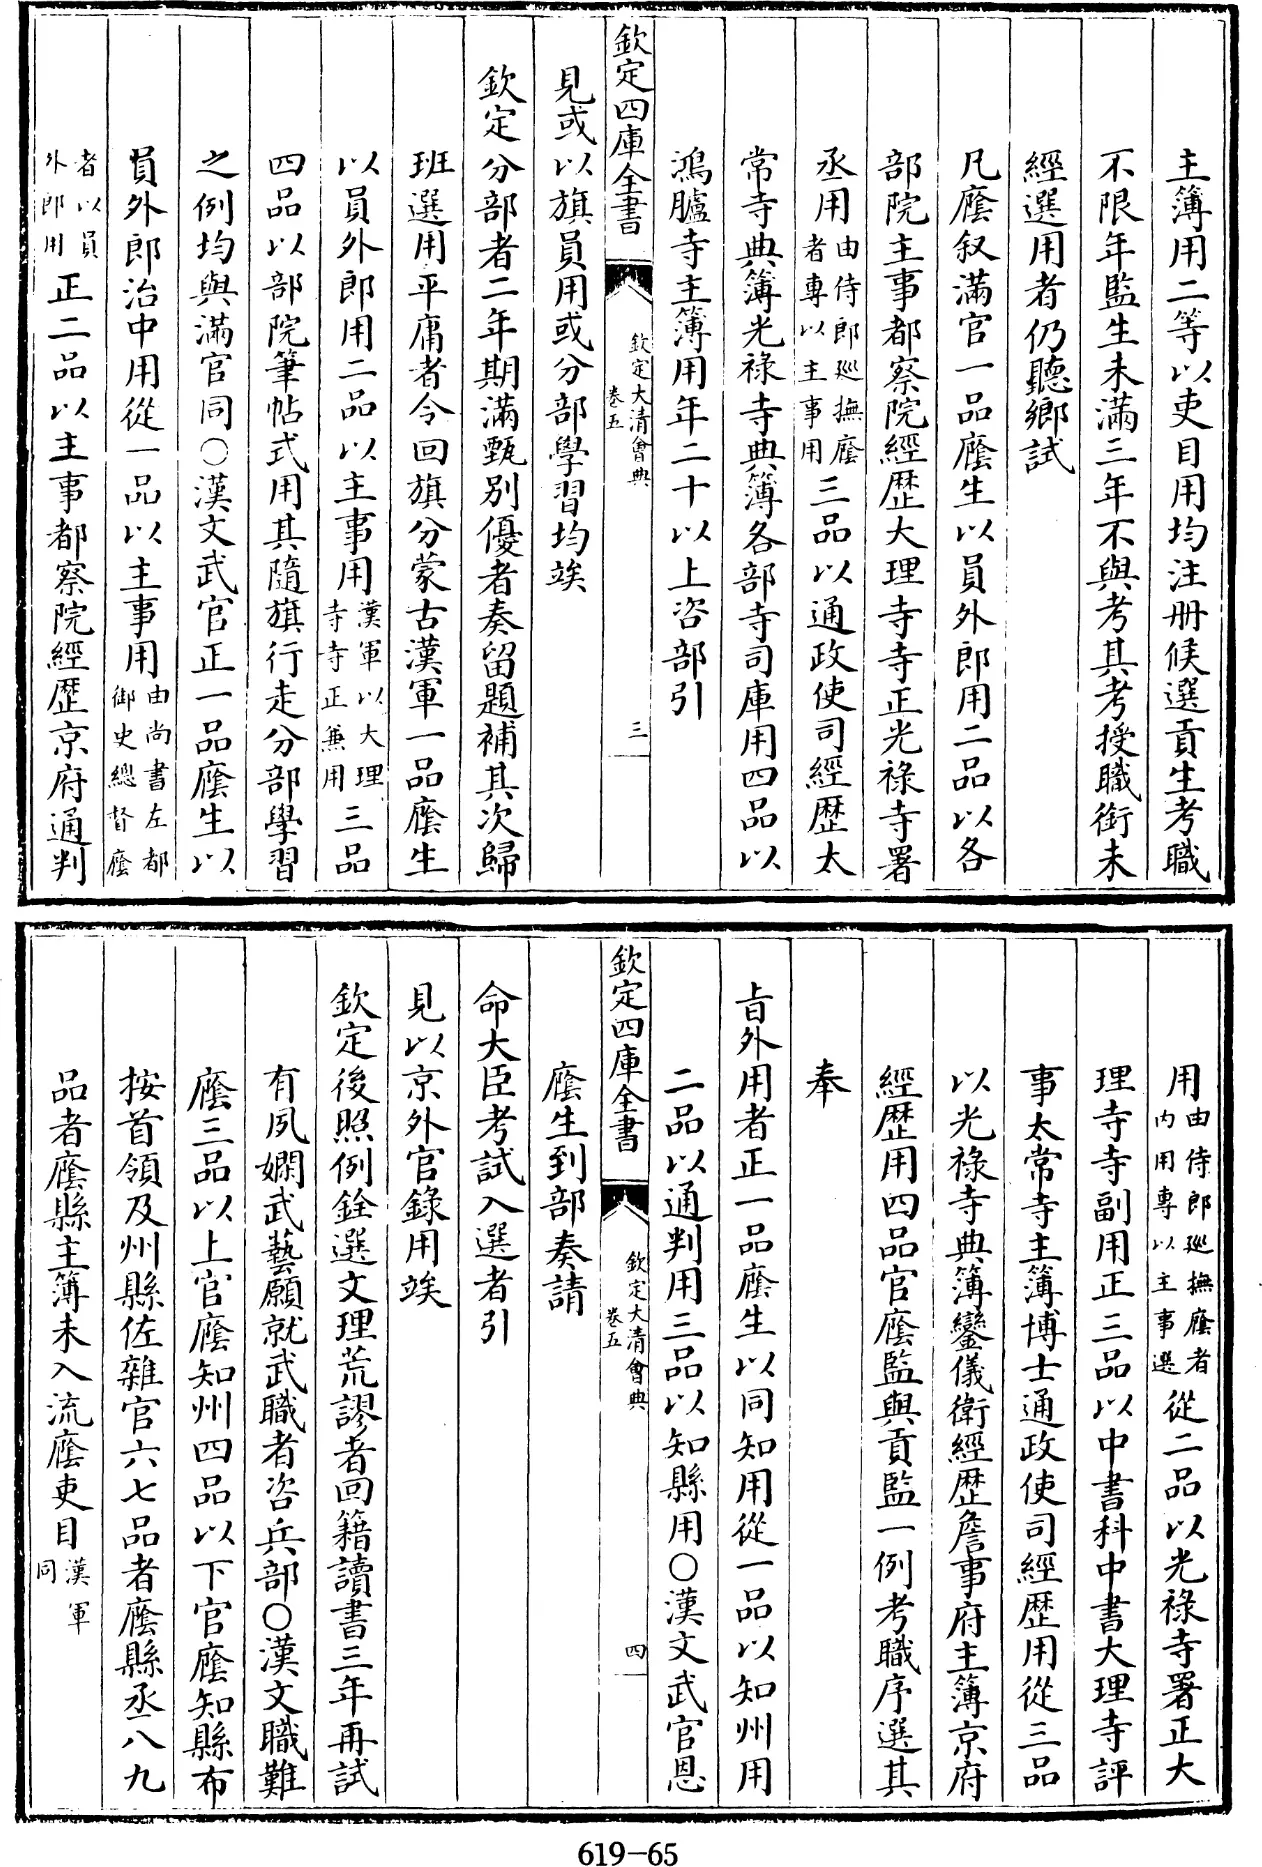 主簿用二等以吏目用均注冊候選貢生考職
不限年監生未滿三年不與考其考授職銜未
經選用者仍聽鄉試
凡廕叙滿官一品廕生以員外郎用二品以各
部院主事都察院經歴大理寺寺正光祿寺署
丞用由侍郎巡撫廕者專以主事用三品以通政使司經歴太
常寺典簿光祿寺典簿各部寺司庫用四品以
鴻臚寺主簿用年二十以上咨部引
欽定四庫全書
欽定大清會典
卷五
三
見或以旗員用或分部學習均竢
欽定分部者二年期滿甄別優者奏留題補其次歸
班選用平庸者令回旗分蒙古漢軍一品廕生
以員外郎用二品以主事用漢軍以大理寺寺正兼用三品
四品以部院筆帖式用其隨旗行走分部學習
之例均與滿官同○漢文武官正一品廕生以
員外郎治中用從一品以主事用由尚書左都御史總督廕
者以員外郎用正二品以主事都察院經歴京府通判
用由侍郎巡撫廕者内用專以主事選從二品以光祿寺署正大
理寺寺副用正三品以中書科中書大理寺評
事太常寺主簿博士通政使司經歴用從三品
以光祿寺典簿鑾儀衛經歴詹事府主簿京府
經歴用四品官廕監與貢監一例考職序選其
奉
旨外用者正一品廕生以同知用從一品以知州用
二品以通判用三品以知縣用○漢文武官恩
欽定四庫全書
欽定大清會典
卷五
四
廕生到部奏請
命大臣考試入選者引
見以京外官錄用竢
欽定後照例銓選文理荒謬者回籍讀書三年再試
有夙嫻武藝願就武職者咨兵部○漢文職難
廕三品以上官廕知州四品以下官廕知縣布
按首領及州縣佐雜官六七品者廕縣丞八九
品者廕縣主簿未入流廕吏目漢軍同
619-65